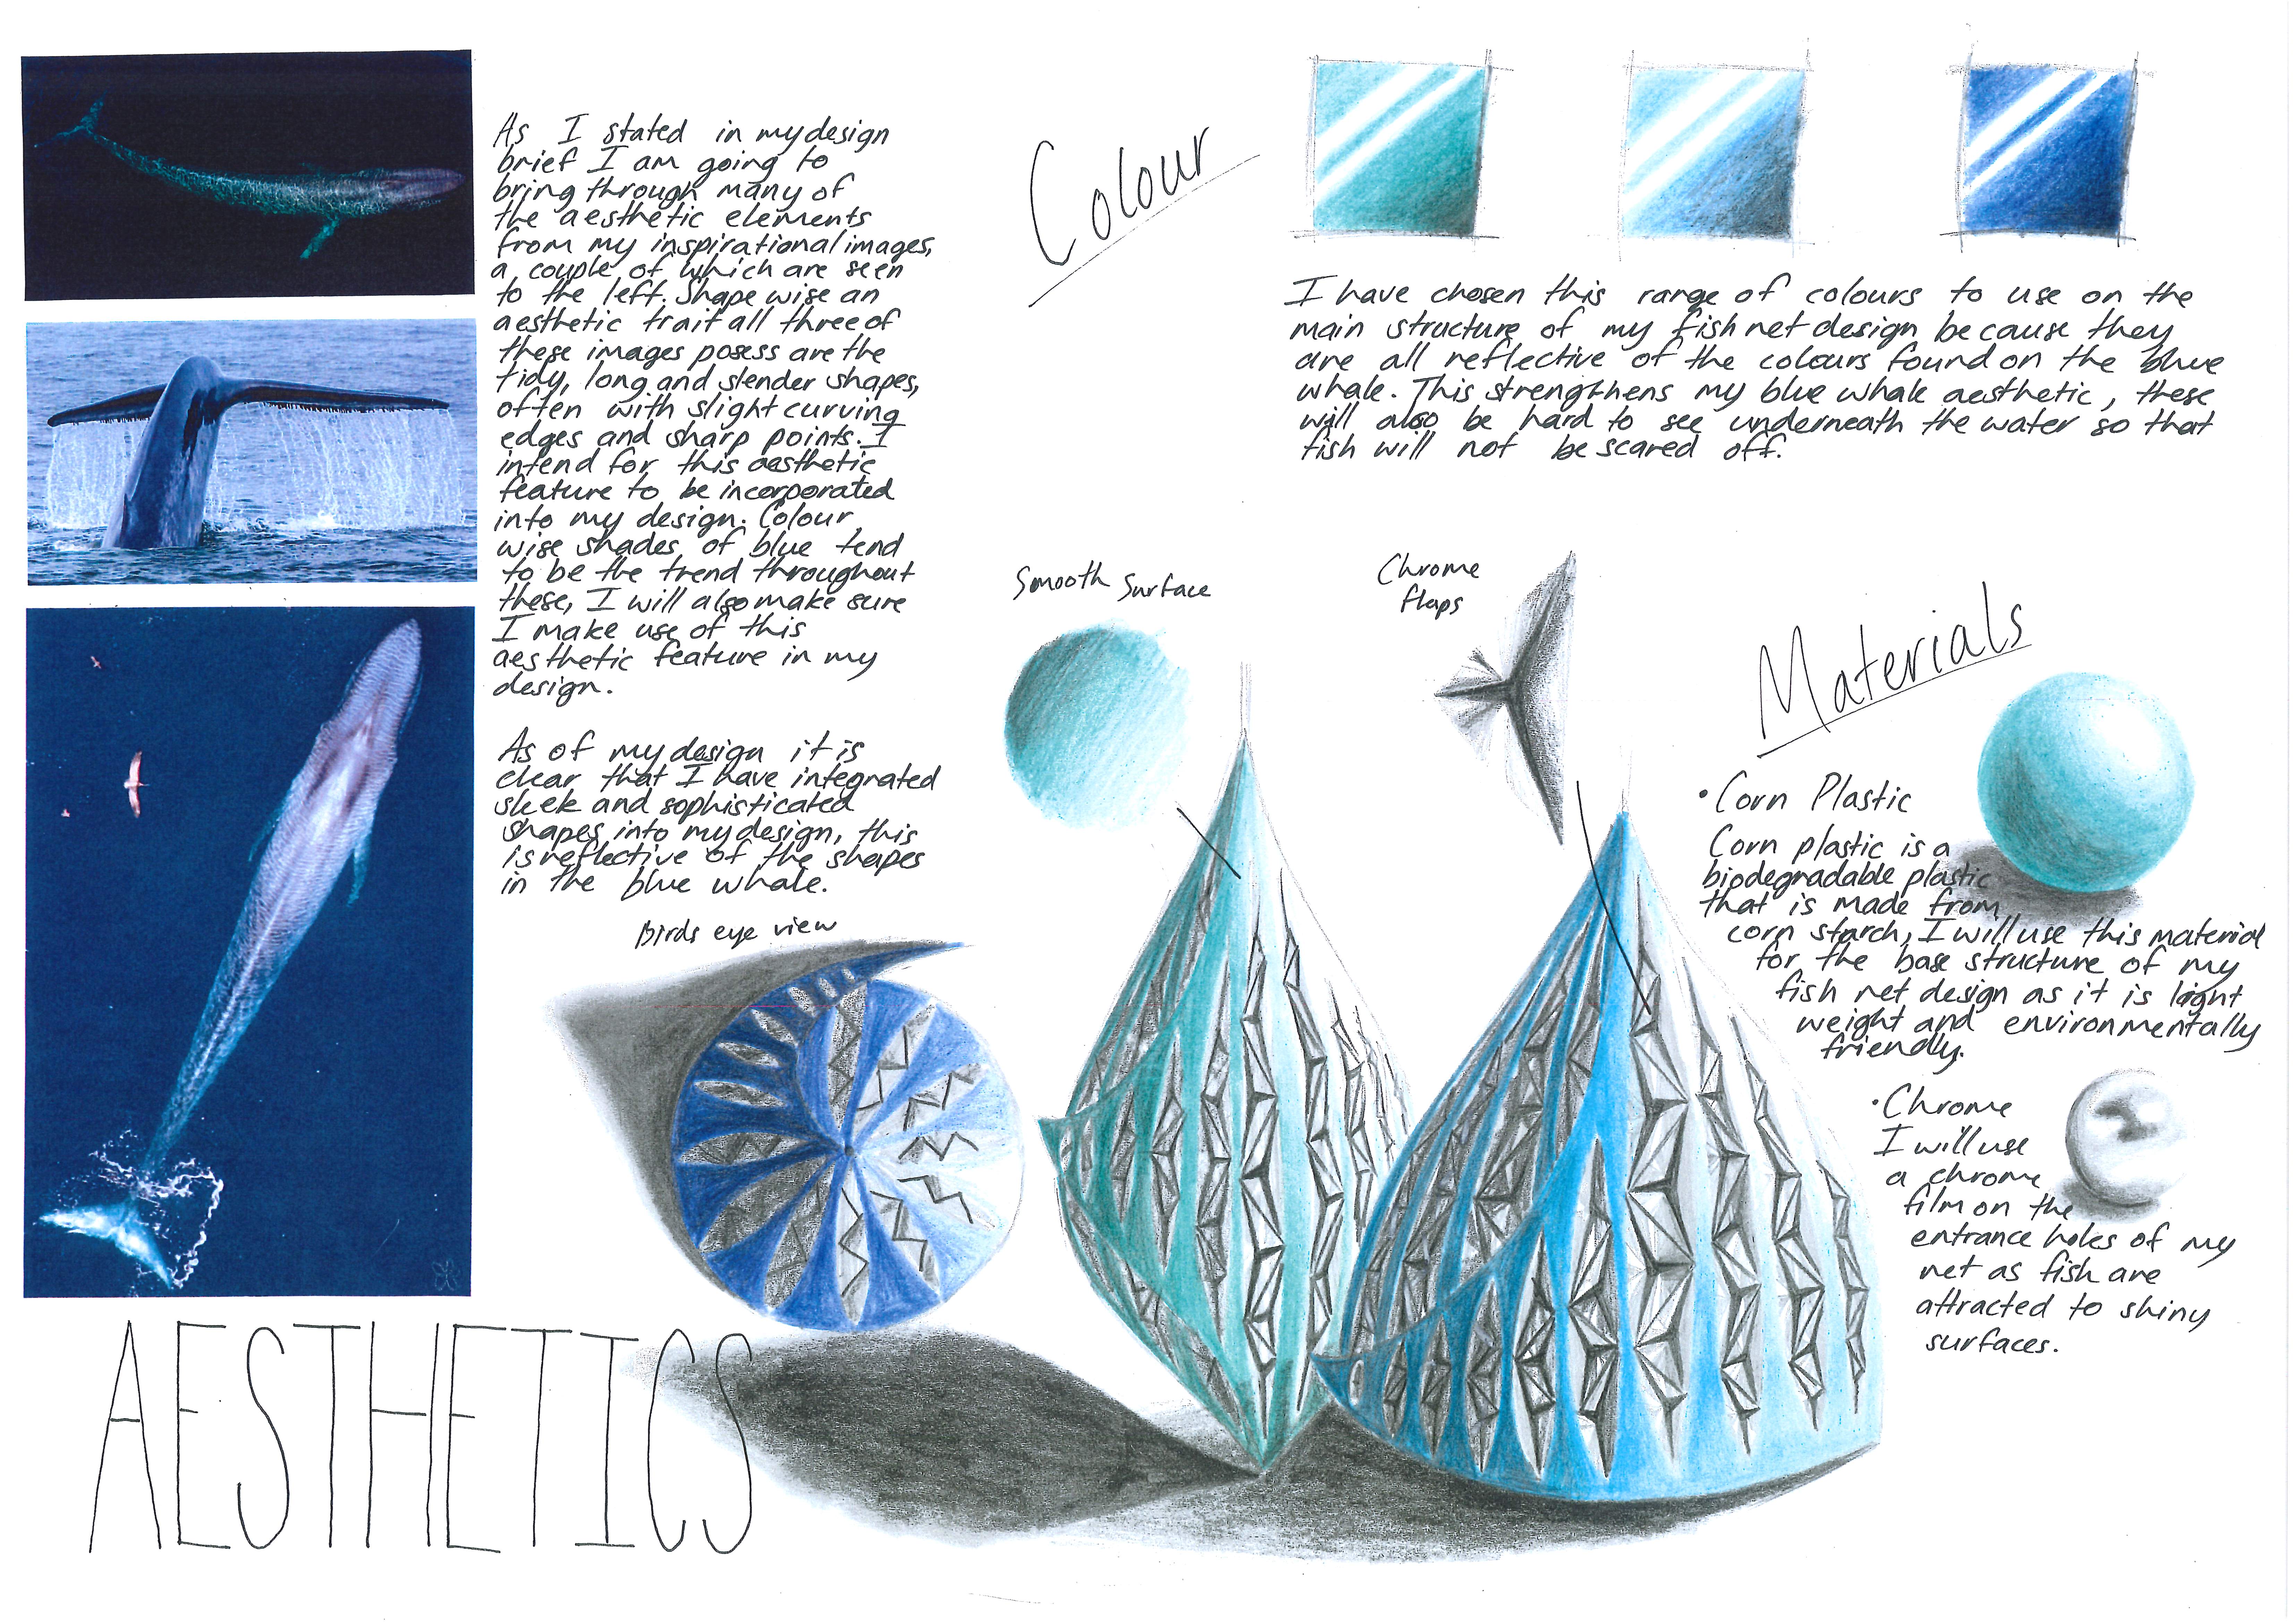 As I stated in my design
brief I am going to
bring through many of
the aesthetic elements
from my inspirational images,
a couple of which are seen
to the left. Shape wise an
aesthetic trait all three of
these images posess are the
tidy, long and slender shapes,
often with slight curving
edges and sharp points. I
intend for this aesthetic
feature to be incorporated
into my design. Colour
wise shades of blue tend
to be the trend throughout
these, I will also make sure
I make use of this
aesthetic feature in my
design.
As of my design it is
clear that I have integrated
sleek and sophisticated
shapes into my design, this
is reflective of the shapes
in the blue whale.
Birds eye view
AESTHETICS
Colour
I have chosen this range of colours to use on the
main structure of my fish net design because they
are all reflective of the colours found on the blue
whale. This strengthens my blue whale aesthetic, these
will also be hard to see underneath the water so that
fish will not be scared off.
Smooth Surface
Chrome
flaps
Materials
• Corn Plastic
Corn plastic is a
biodegradable plastic
that is made from
corn starch, I will use this material
for the base structure of my
fish net design as it is light
weight and environmentally
friendly.
• Chrome
I will use
a chrome
film on the
entrance holes of my
net as fish are
attracted to shiny
surfaces.